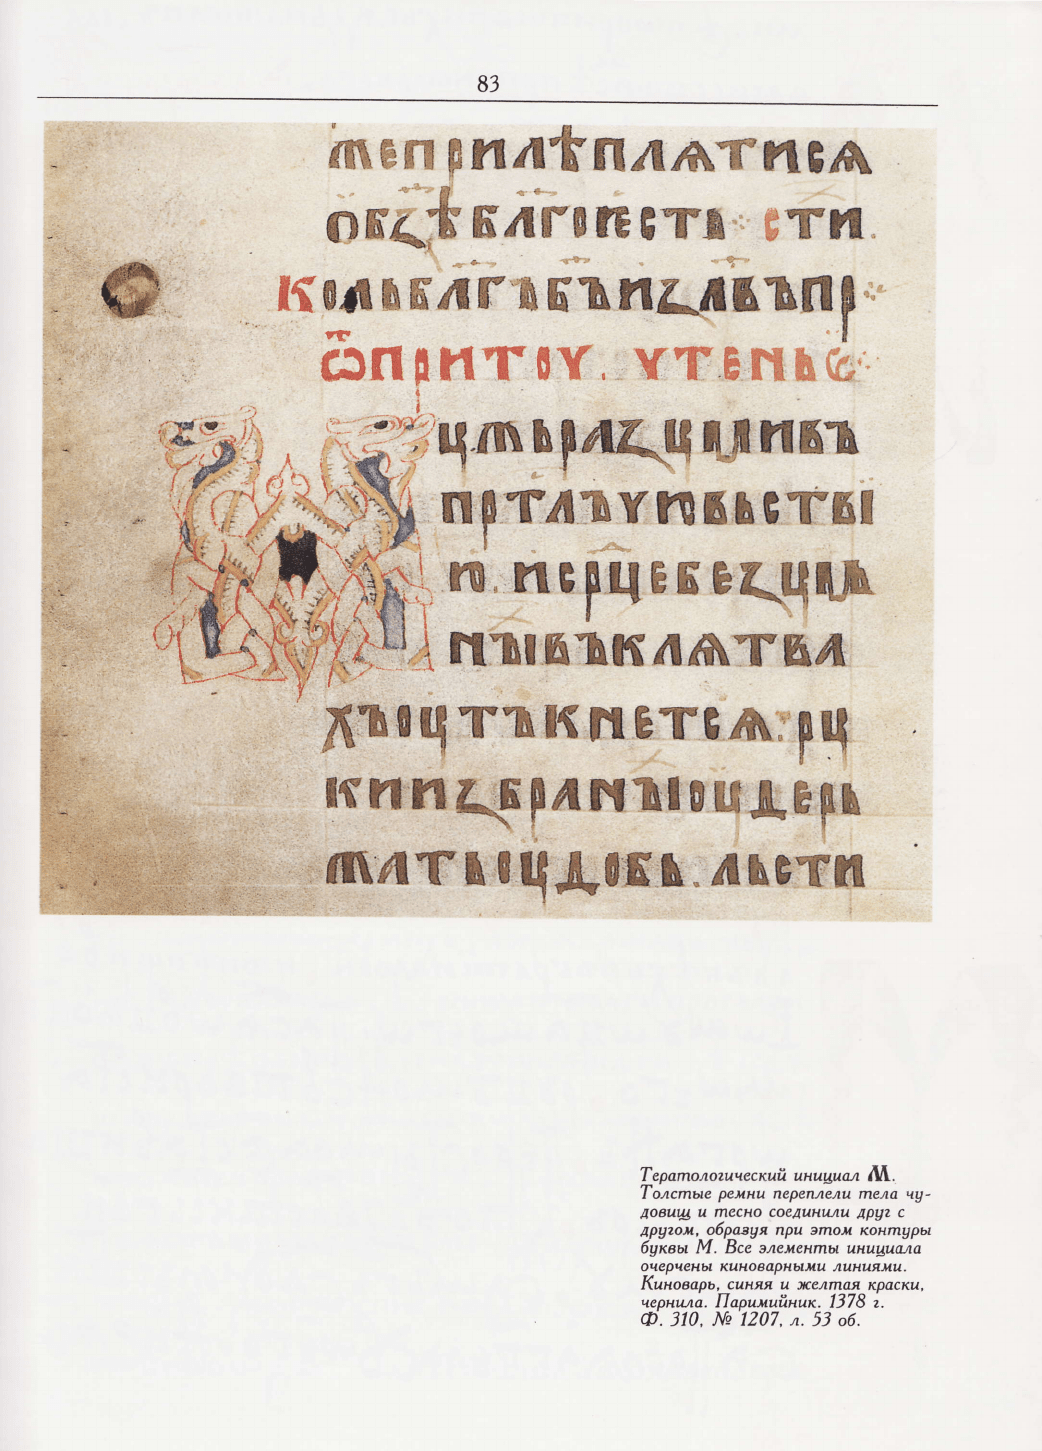 83
мепрілѣплятися
обꙁѣ благоіесть. сти.
Кольблгъбъиꙁлвъпр
ѿпритоу. утеньѥ
цмьраꙁ
пртлъ ѵ
нъівъклѧтва
хъоцтъкнетсѧ. рц
киіꙁбранъіоцдерь
матьоцдобь. льсти
Тератологический инициал М.
Толстые ремни переплели тела чу-
довищ и тесно соединили друг с
другом, образуя при этом контуры
буквы М. Все элементы инициала
очерчены киноварными линиями.
Киноварь, синяя и желтая краски,
чернила. Паримийник. 1378 г.
Ф. 310, № 1207, л. 53 об.